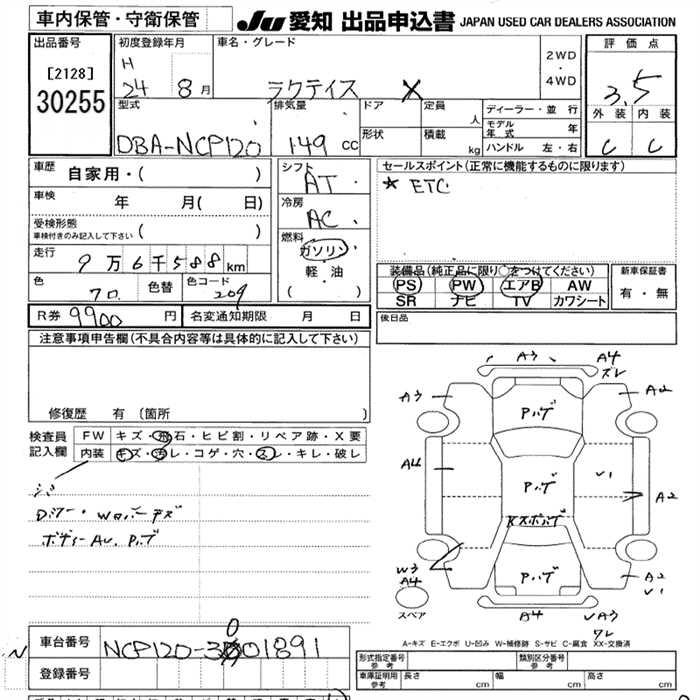 車内保管・守衛保管
JU 愛知 出品申込書 JAPAN USED CAR DEALERS ASSOCIATION
出品番号
[2128]
30255
初度登録年月
H
24 8月
車名・グレード
ラクティス X
2WD
・
4WD
評価点
3.5
外装 内装
C C
型式
DBA-NCP120
排気量
149 CC
ドア
形状
定員 人
積載 kg
ディーラー・並行
モデル年式 年
ハンドル 左・右
車歴 自家用・( )
車検 年 月( 日)
受検形態
車検付きのみ記入して下さい ( )
走行 9万6千588km
色 クロ 色替 色コード 209
シフト
AT
冷房
AC
燃料
ガソリン
・
軽・油
( )
セールスポイント(正常に機能するものに限ります)
★ ETC
装備品(純正品に限り○をつけてください)
PS PW エアB AW
SR ナビ TV カワシート
新車保証書
有・無
R券 9900 円 名変通知期限 月 日
後日品
注意事項申告欄(不具合内容等は具体的に記入して下さい)
修復歴 有 (箇所 )
検査員
記入欄
FW キズ・飛石・ヒビ割・リペア跡・X要
内装 キズ・汚レ・コゲ・穴・スレ・キレ・破レ
ボディーAU. Pハゲ
A3 A4
ズレ
A3 A2
Pハゲ
A4 Pハゲ V1 A2
W3
A4 Pハゲ A2
V1
スペア A4 VA3
ワレ
A-キズ E-エクボ U-凹み W-補修跡 S-サビ C-腐食 XX-交換済
車台番号 NCP120-3001891
登録番号
形式指定番号
参考
類別区分番号
参考
車庫証明用
参考
長さ cm 幅 cm 高さ cm